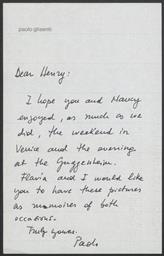 paolo glisenti
Dear Henry:
I hope you and Nancy
enjoyed, as much as we
did, the weekend in
Venice and the evening
at the Guggenheim.
Flavia and I would like
you to have these pictures
as memoires of both
occasions.
Truly yours,
Paolo